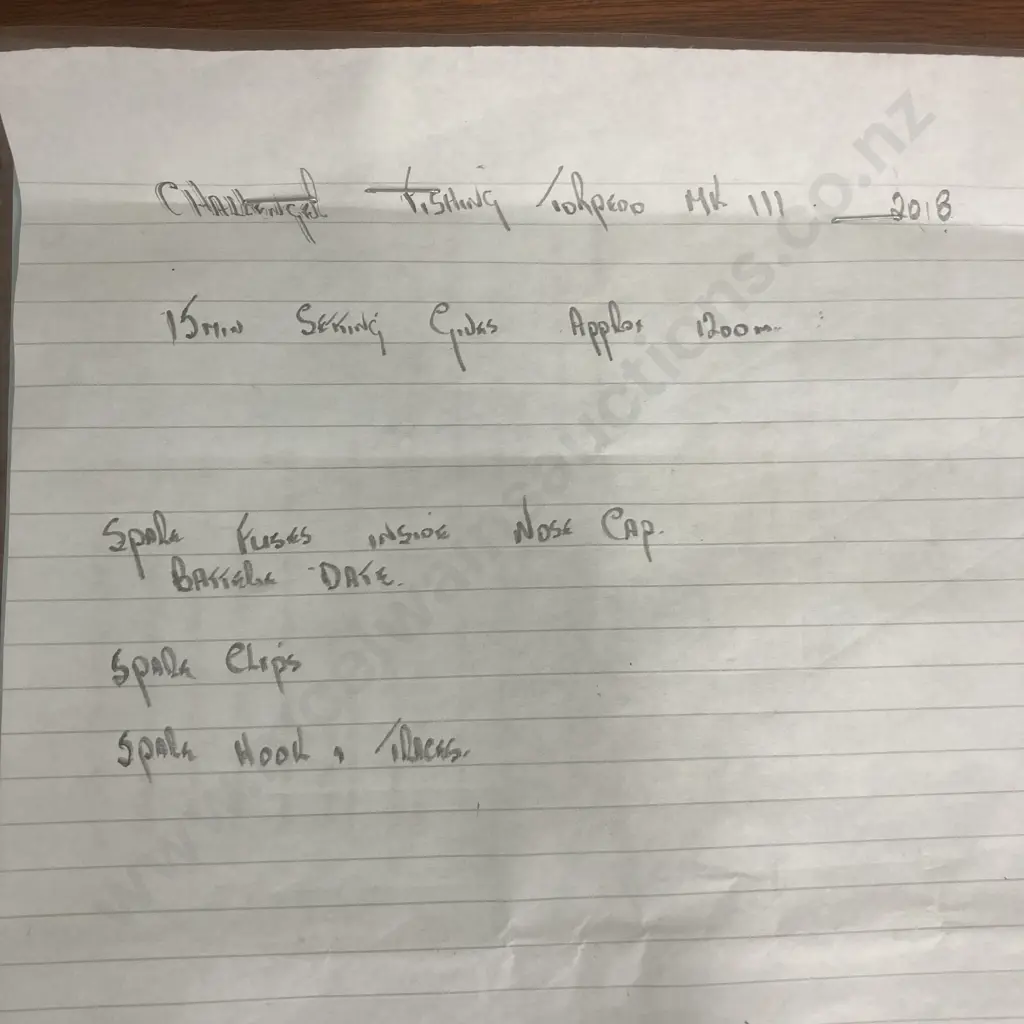 CHALLENGER FISHING TORPEDO MK III 2018
15 MIN SETTING GIVES APPROX 1200m.
SPARE FUSES INSIDE NOSE CAP.
BATTERY DATE.
SPARE CLIPS
SPARE HOOK + TRACES.